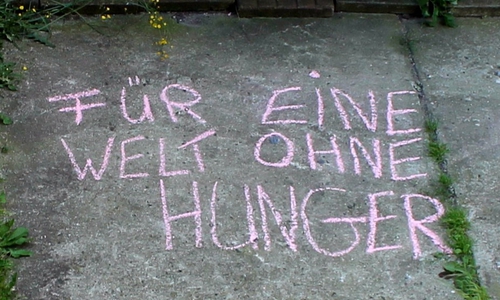 FÜR EINE
WELT OHNE
HUNGER